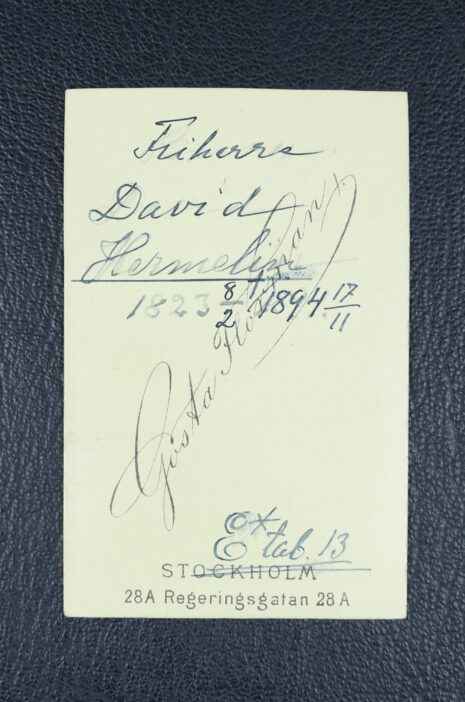 Friherre
David
Hermelin
1823 8/2 † 1894 17/11
Gösta Florman
tab. 13
STOCKHOLM
28A Regeringsgatan 28A